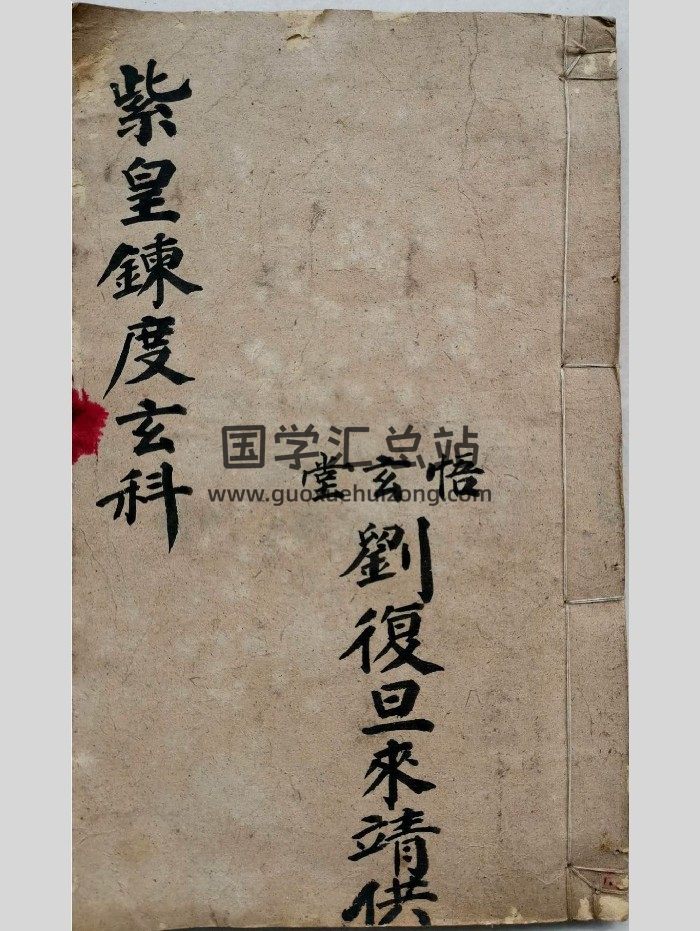 紫皇鍊度玄科
悟玄堂
劉復旦來靖供
国学汇总站
www.guoxuehuizong.com